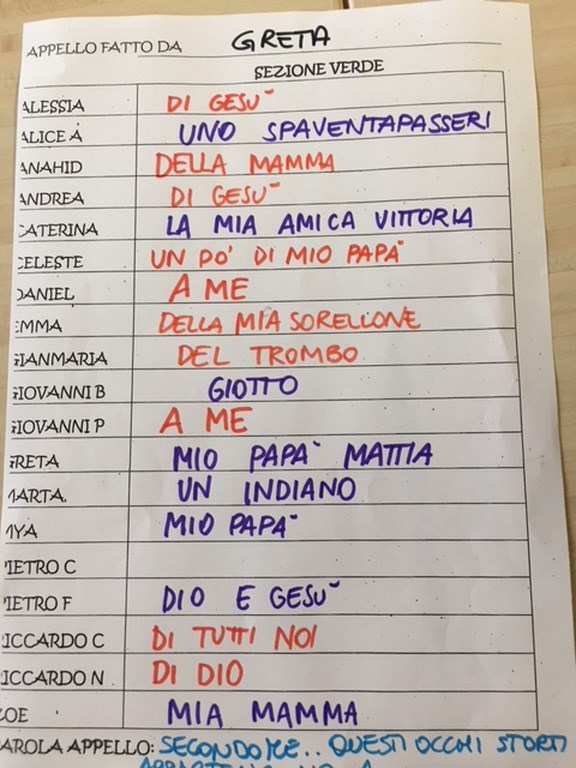 APPELLO FATTO DA GRETA
SEZIONE VERDE
ALESSIA DI GESU'
ALICE A UNO SPAVENTAPASSERI
ANAHID DELLA MAMMA
ANDREA DI GESU'
CATERINA LA MIA AMICA VITTORIA
CELESTE UN PO' DI MIO PAPA'
DANIEL A ME
EMMA DELLA MIA SORELLONE
GIANMARIA DEL TROMBO
GIOVANNI B GIOTTO
GIOVANNI P A ME
GRETA MIO PAPA' MATTIA
MARTA. UN INDIANO
MYA MIO PAPA'
PIETRO C
PIETRO F DIO E GESU'
RICCARDO C DI TUTTI NOI
RICCARDO N DI DIO
ZOE MIA MAMMA
PAROLA APPELLO: SECONDO ME.. QUESTI OCCHI STORTI